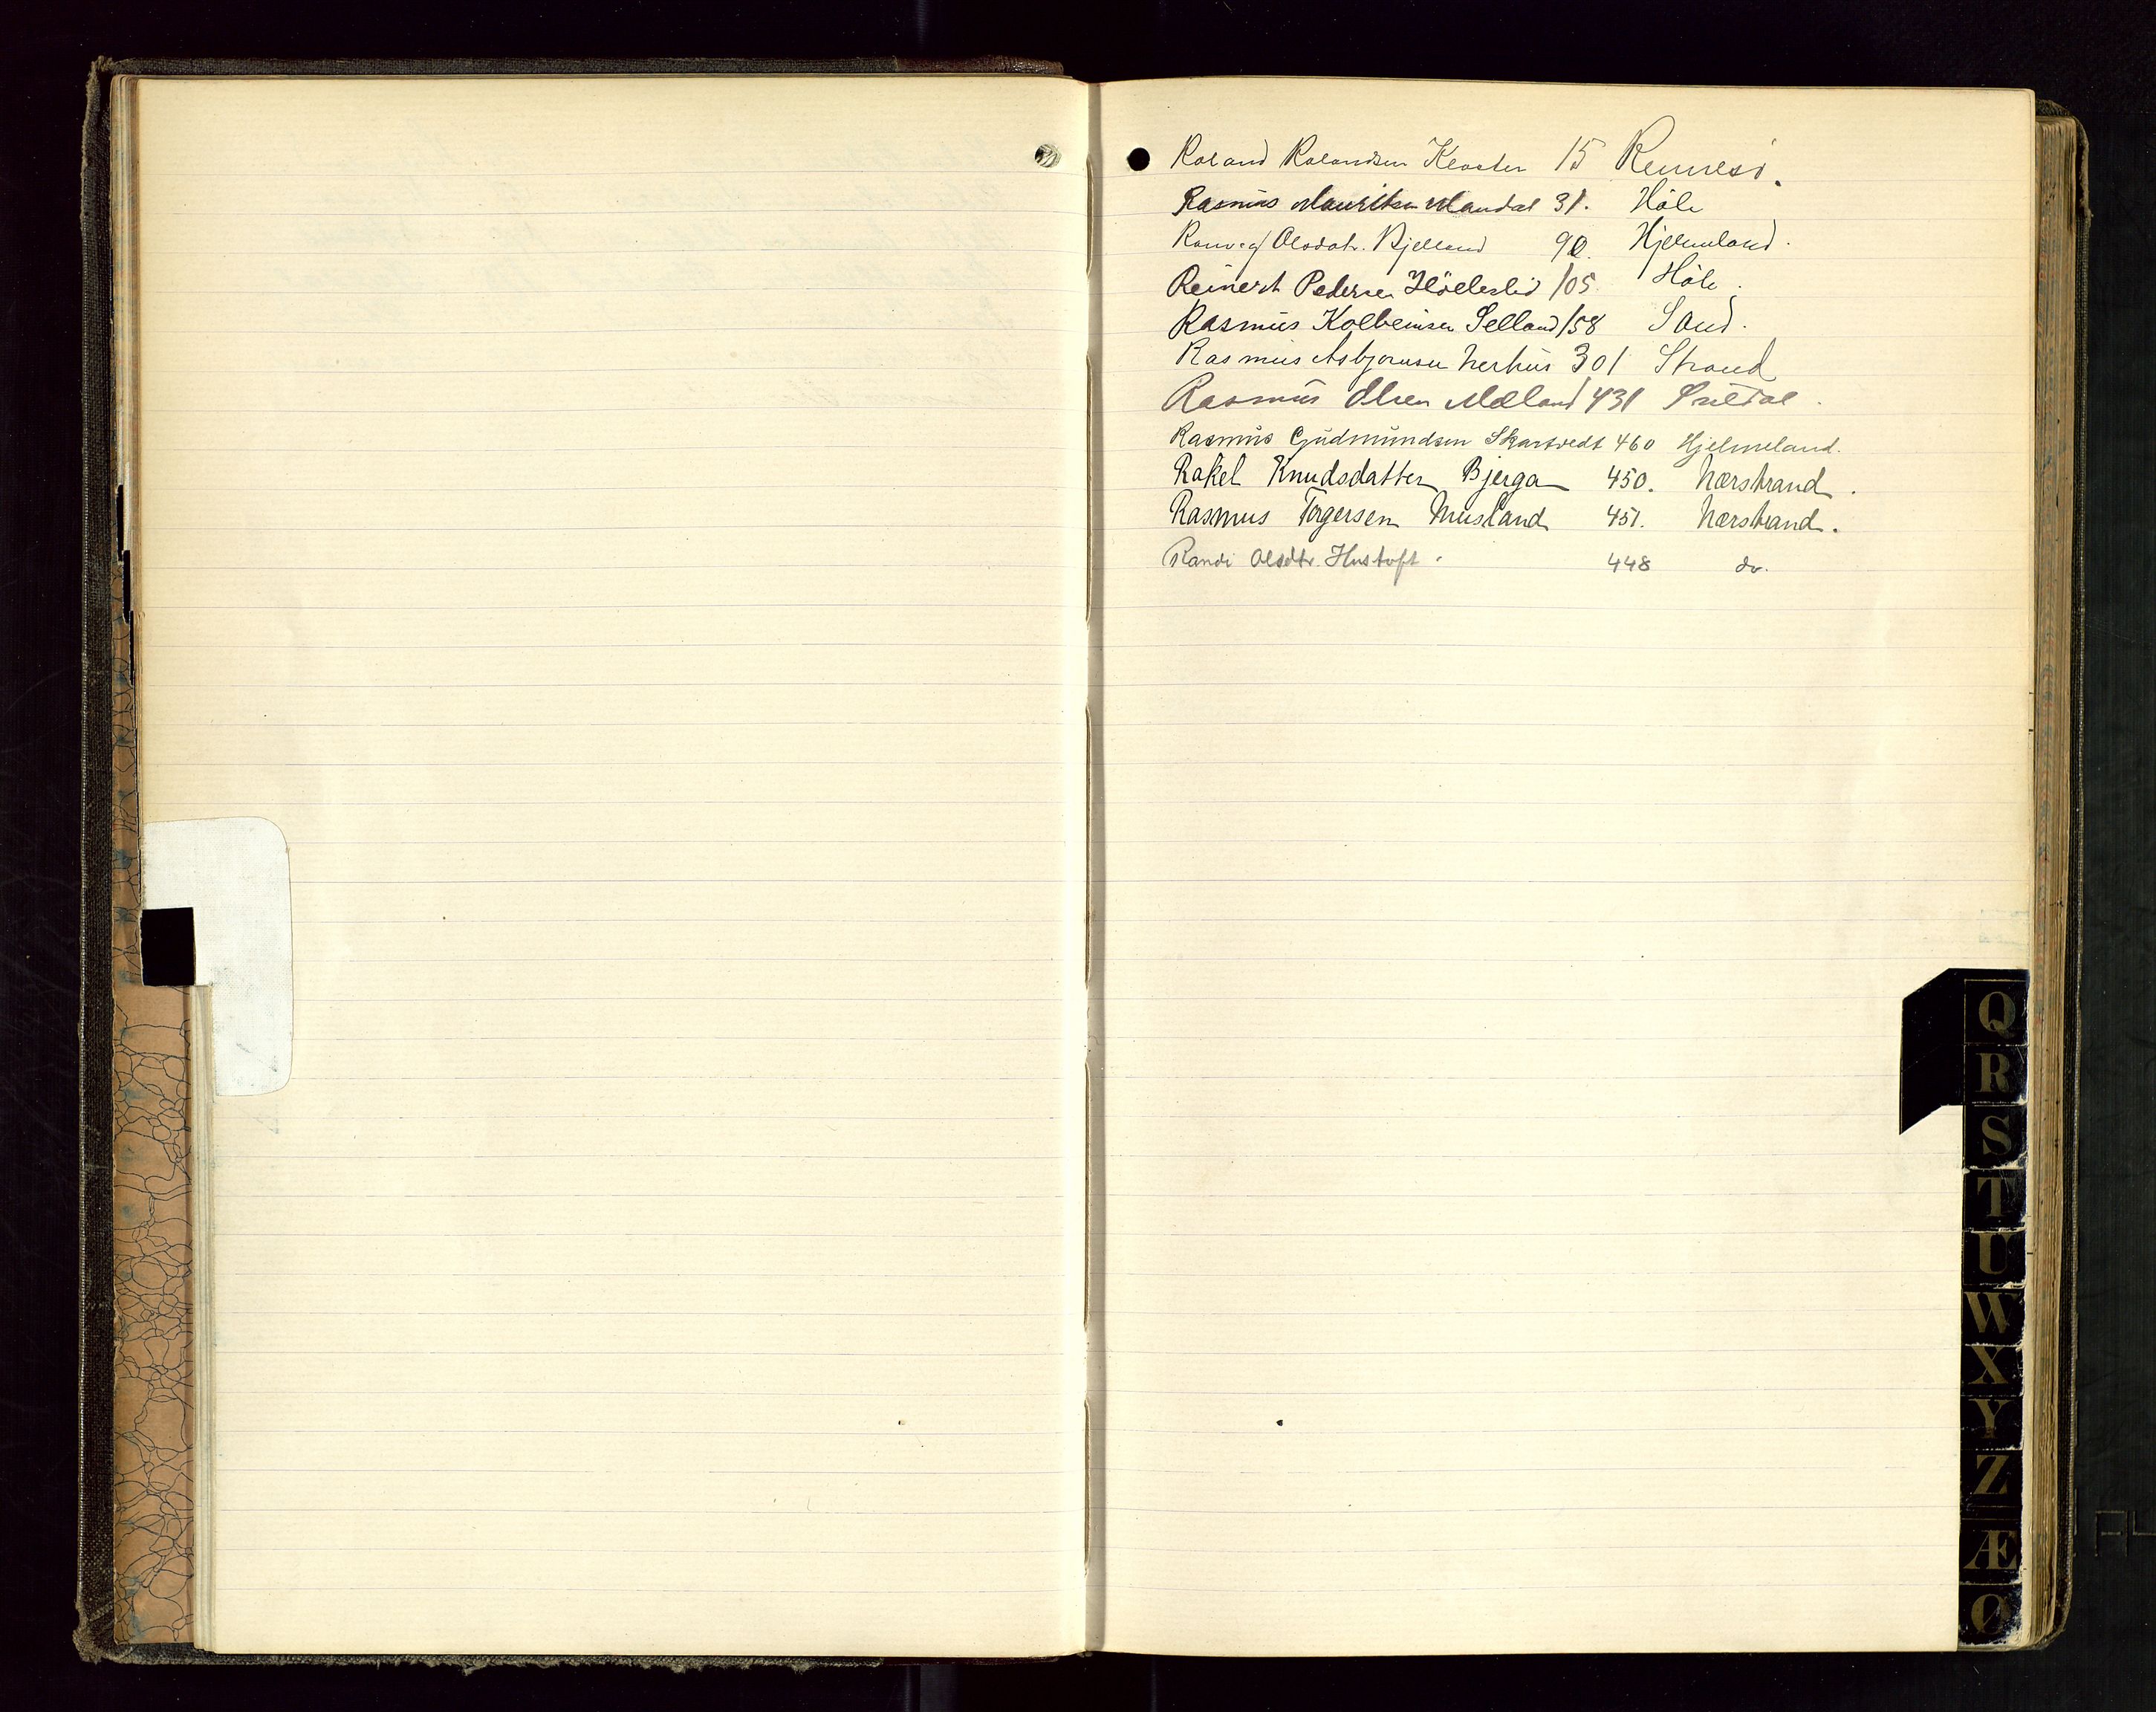 Roland Rolandsen Kloster 15 Rennesö.
Rasmus Mauritsen Mandal 31. Höle
Ranveg Olsdatr. Bjelland 90. Hjelmeland.
Reinert Pedersen Hölleslid 105. Höle.
Rasmus Kolbeinsen Selland 158 Sand.
Rasmus Asbjørnsen Nerhus 301 Strand
Rasmus Olsen Mæland 431 Suldal.
Rasmus Gudmundsen Skartvedt 460 Hjelmeland.
Rakel Knudsdatter Bjerga 450. Nærstrand.
Rasmus Torgersen Musland 451. Nærstrand.
Randi Olsdtr. Hustoft. 448 do.
Q
R
S
T
U
W
X
Y
Z
Æ
Ø